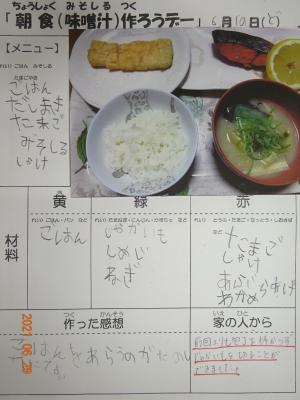 ちょうしょく みそしる つく
「朝食(味噌汁)作ろうデー」6月12日(ど)
【メニュー】
れい)ごはん みそしる
たまごやき
ごはん
だしまき
たまご
みそしる
しゃけ
黄 緑 赤
材料
れい)ごはん・パン など
ごはん
じゃがいも
しめじ
ねぎ
たまご
しゃけ
あぶらあげ
わかめ
つく かんそう
作った感想
いえ ひと
家の人から
ごはんをあらうのがたのし
かったです。
前回よりも包丁を持つ
じゃがいもを切ることが
できました。
2021 06 29